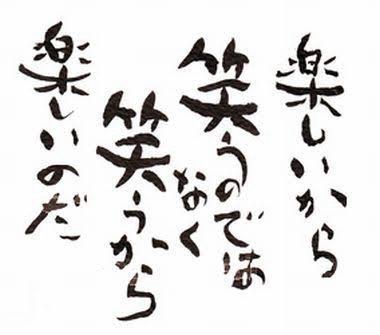 楽しいから
笑うのでは
なく
笑うから
楽しいのだ